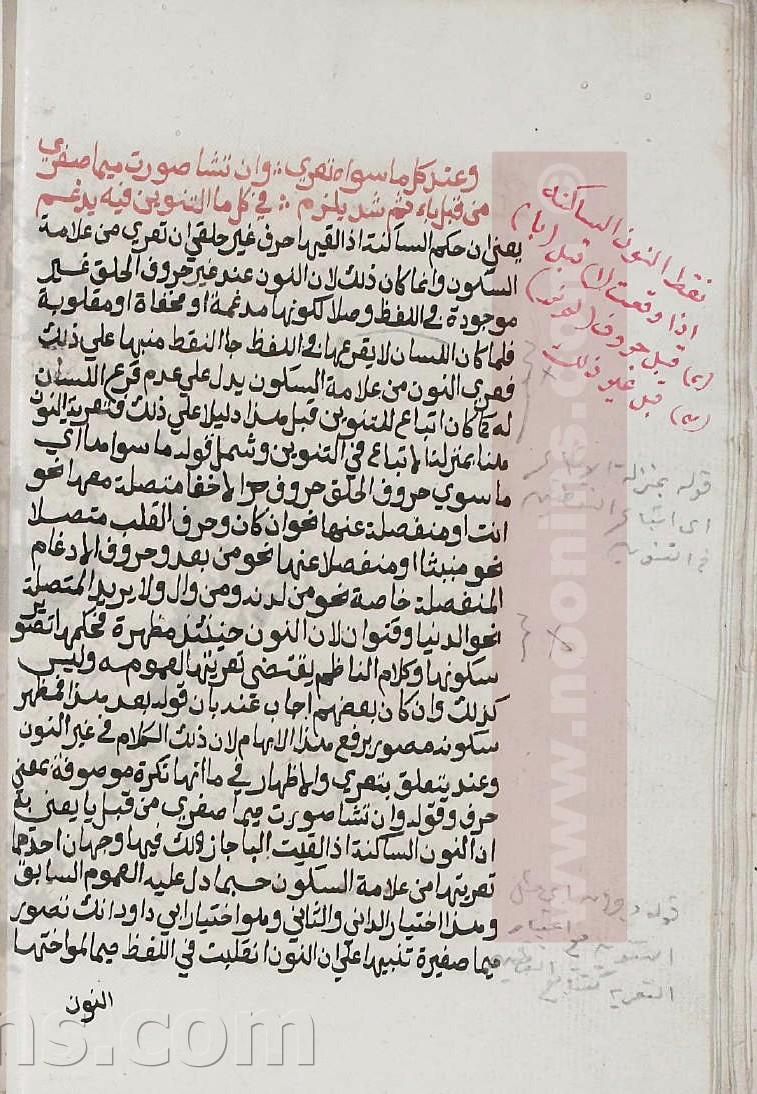 وعند كل ما سواه تعري ⁘ وان تشا صورت ميما صغري
من قبل باء ثم شد يلزم ⁘ في كل ما التنوين فيه يدغم
يعني ان حكم الساكنة اذا لقيها حرف غير حلقي ان تعري من علامة
السكون وانما كان ذلك لان النون عند غير حروف الحلق غير
موجودة في اللفظ وصلا لكونها مدغمة او مخفاة او مقلوبة
فلما كان اللسان لا يقرعها في اللفظ جا النقط منبها علي ذلك
فعري النون من علامة السكون يدل علي عدم قرع اللسان
له كما كان اتباع للتنوين قبل هذا دليلا علي ذلك فتعرية النون
هنا بمنزلة الاتباع في التنوين وشمل قوله ما سواه ما اي
ما سوي حروف الحلق حروف الاخفا متصلة معها نحو
انت او منفصلة عنها نحو ان كان وحرف القلب متصلا
نحو منبثا او منفصلا عنها نحو من بعد وحروف الادغام
المنفصلة خاصة نحو من لدنه ومن وال ولا يريد المتصلة
نحو الدنيا وقنوان لان النون حينئذ مظهرة فحكمها تصوير
سكونها وكلام الناظم يقتضي تعريتها لعمومه وليس
كذلك وان كان بعضهم اجاب عنه بان قوله بعد هذا فمظهر
سكونه مصور يرفع هذا الابهام لان ذلك الكلام في غير النون
وعند يتعلق بتعري والاظهار في ما انها نكرة موصوفة بمعني
حرف وقوله وان تشا صورت ميما صغري من قبل با يعني به
ان النون الساكنة اذا لقيت البا جاز لك فيها وجهان احدهما
تعريتها من علامة السكون حسبما دل عليه العموم السابق
وهذا اختيار الداني والثاني وهو اختيار ابي داود انك تصور
ميما صغيرة تنبيها علي ان النون انقلبت في اللفظ ميما لمواختها
النون
نقط النون الساكنه
اذا وقعت (١) قبل (با)
(٢) قبل حروف
(٣) قبل غير ذلك
قوله بمنزلة الاتباع
اي اتباع
في التنوين
قوله
التعرية
www.noonins.com
ns.com